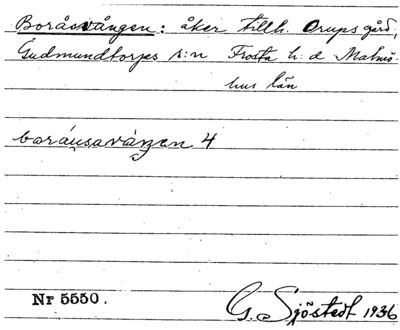 Boråsvången: åker tillh. Orups gård,
Gudmundtorps s:n Frosta h:d Malmö-
hus län
boráusavåŋen 4
Nr 5550.
G. Sjöstedt 1936